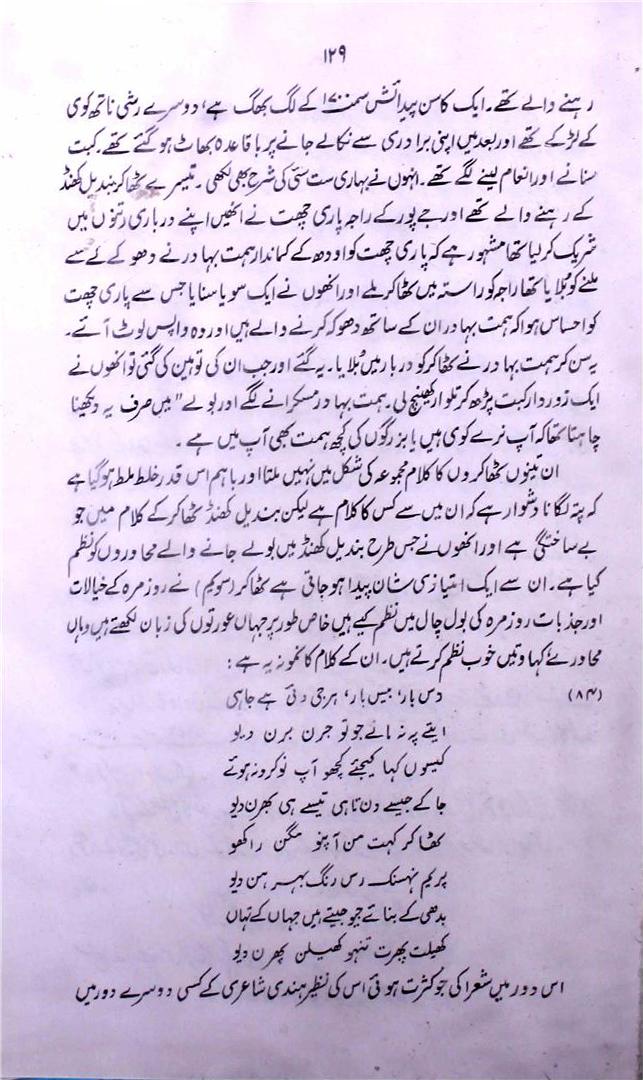 ۱۲۹
رہنے والے تھے۔ ایک کا سن پیدائش سمت ۱۷۰۰ کے لگ بھگ ہے، دوسرے رشی ناتھ کوی
کے لڑکے تھے اور بعد میں اپنی برادری سے نکالے جانے پر باقاعدہ بھاٹ ہو گئے تھے۔ کبت
سنانے اور انعام لینے لگے تھے۔ انہوں نے بہاری ست سئی کی شرح بھی لکھی۔ تیسرے ٹھاکر بندیل کھنڈ
کے رہنے والے تھے اور جے پور کے راجہ پاری چھت نے انھیں اپنے درباری رتنوں میں
شریک کر لیا تھا مشہور ہے کہ پاری چھت کو اودھ کے کماندار ہمت بہادر نے دھوکے سے
ملنے کو بُلایا تھا راجہ کو راستہ میں ٹھاکر ملے اور انھوں نے ایک سویا سنایا جس سے پاری چھت
کو احساس ہوا کہ ہمت بہادر ان کے ساتھ دھوکہ کرنے والے ہیں اور وہ واپس لوٹ آئے۔
یہ سن کر ہمت بہادر نے ٹھاکر کو دربار میں بُلایا۔ یہ گئے اور جب ان کی توہین کی گئی تو انھوں نے
ایک زوردار کبت پڑھ کر تلوار کھینچ لی۔ ہمت بہادر مسکرانے لگے اور بولے "میں صرف یہ دیکھنا
چاہتا تھا کہ آپ نرے کوی ہیں یا بزرگوں کی کچھ ہمت بھی آپ میں ہے۔
ان تینوں ٹھاکروں کا کلام مجموعہ کی شکل میں نہیں ملتا اور باہم اس قدر خلط ملط ہو گیا ہے
کہ پتہ لگانا دشوار ہے کہ ان میں سے کس کا کلام ہے لیکن بندیل کھنڈ ٹھاکر کے کلام میں جو
بے ساختگی ہے اور انھوں نے جس طرح بندیل کھنڈ میں بولے جانے والے محاوروں کو نظم
کیا ہے۔ ان سے ایک امتیازی شان پیدا ہو جاتی ہے ٹھاکر (سوکیم) نے روزمرہ کے خیالات
اور جذبات روزمرہ کی بول چال میں نظم کیے ہیں خاص طور پر جہاں عورتوں کی زبان لکھتے ہیں وہاں
محاورے کہاوتیں خوب نظم کرتے ہیں۔ ان کے کلام کا نمونہ یہ ہے:
(۸۴) دس بار، بیس بار، برجی دئی ہے جاہی
ایتے پہ نہ مانے جو تو جرن برن دیو
کیسوں کہا کیجئے کچھو آپ نو کرو نہ ہوئے
جا کے جیسے دن تاہی تیسے ہی بھرن دیو
ٹھاکر کہت من آپنو مگن راکھو
پریم نہسنک رس رنگ بہرن دیو
بدھی کے بنائے جو جیتے ہیں جہاں کے تہاں
کھیلت پھرت تنہو کھیلن پھرن دیو
اس دور میں شعرا کی جو کثرت ہوئی اس کی نظیر ہندی شاعری کے کسی دوسرے دور میں